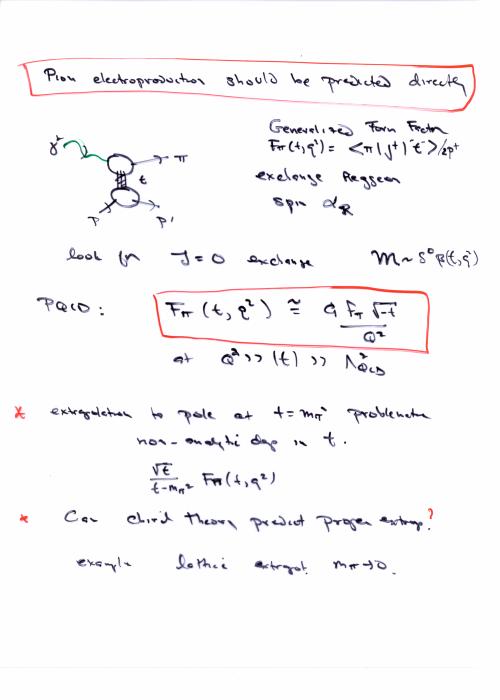 Pion electroproduction should be predicted directly
Generalized Form Factor
γ* π
Fπ(t,q²) = <π|J⁺|"t">/2p⁺
t
exchange Reggeon
p p'
spin αR
look for J=0 exchange M ~ s⁰β(t,q²)
PQCD: Fπ(t,q²) ≅ Fπ √-t / Q²
at Q² >> (t) >> Λ²QCD
* extrapolation to pole at t = mπ² problematic
non-analytic dep in t.
√t / t-mπ² Fπ(t,q²)
* Can chiral theory predict proper extrap?
example lattice extrapol. mπ→0.